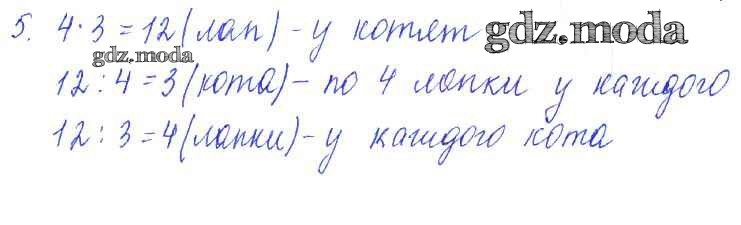 5. 4·3=12(лап)-у котят gdz.moda
gdz.moda
12:4=3(кота)-по 4 лапки у каждого
12:3=4(лапки)-у каждого кота